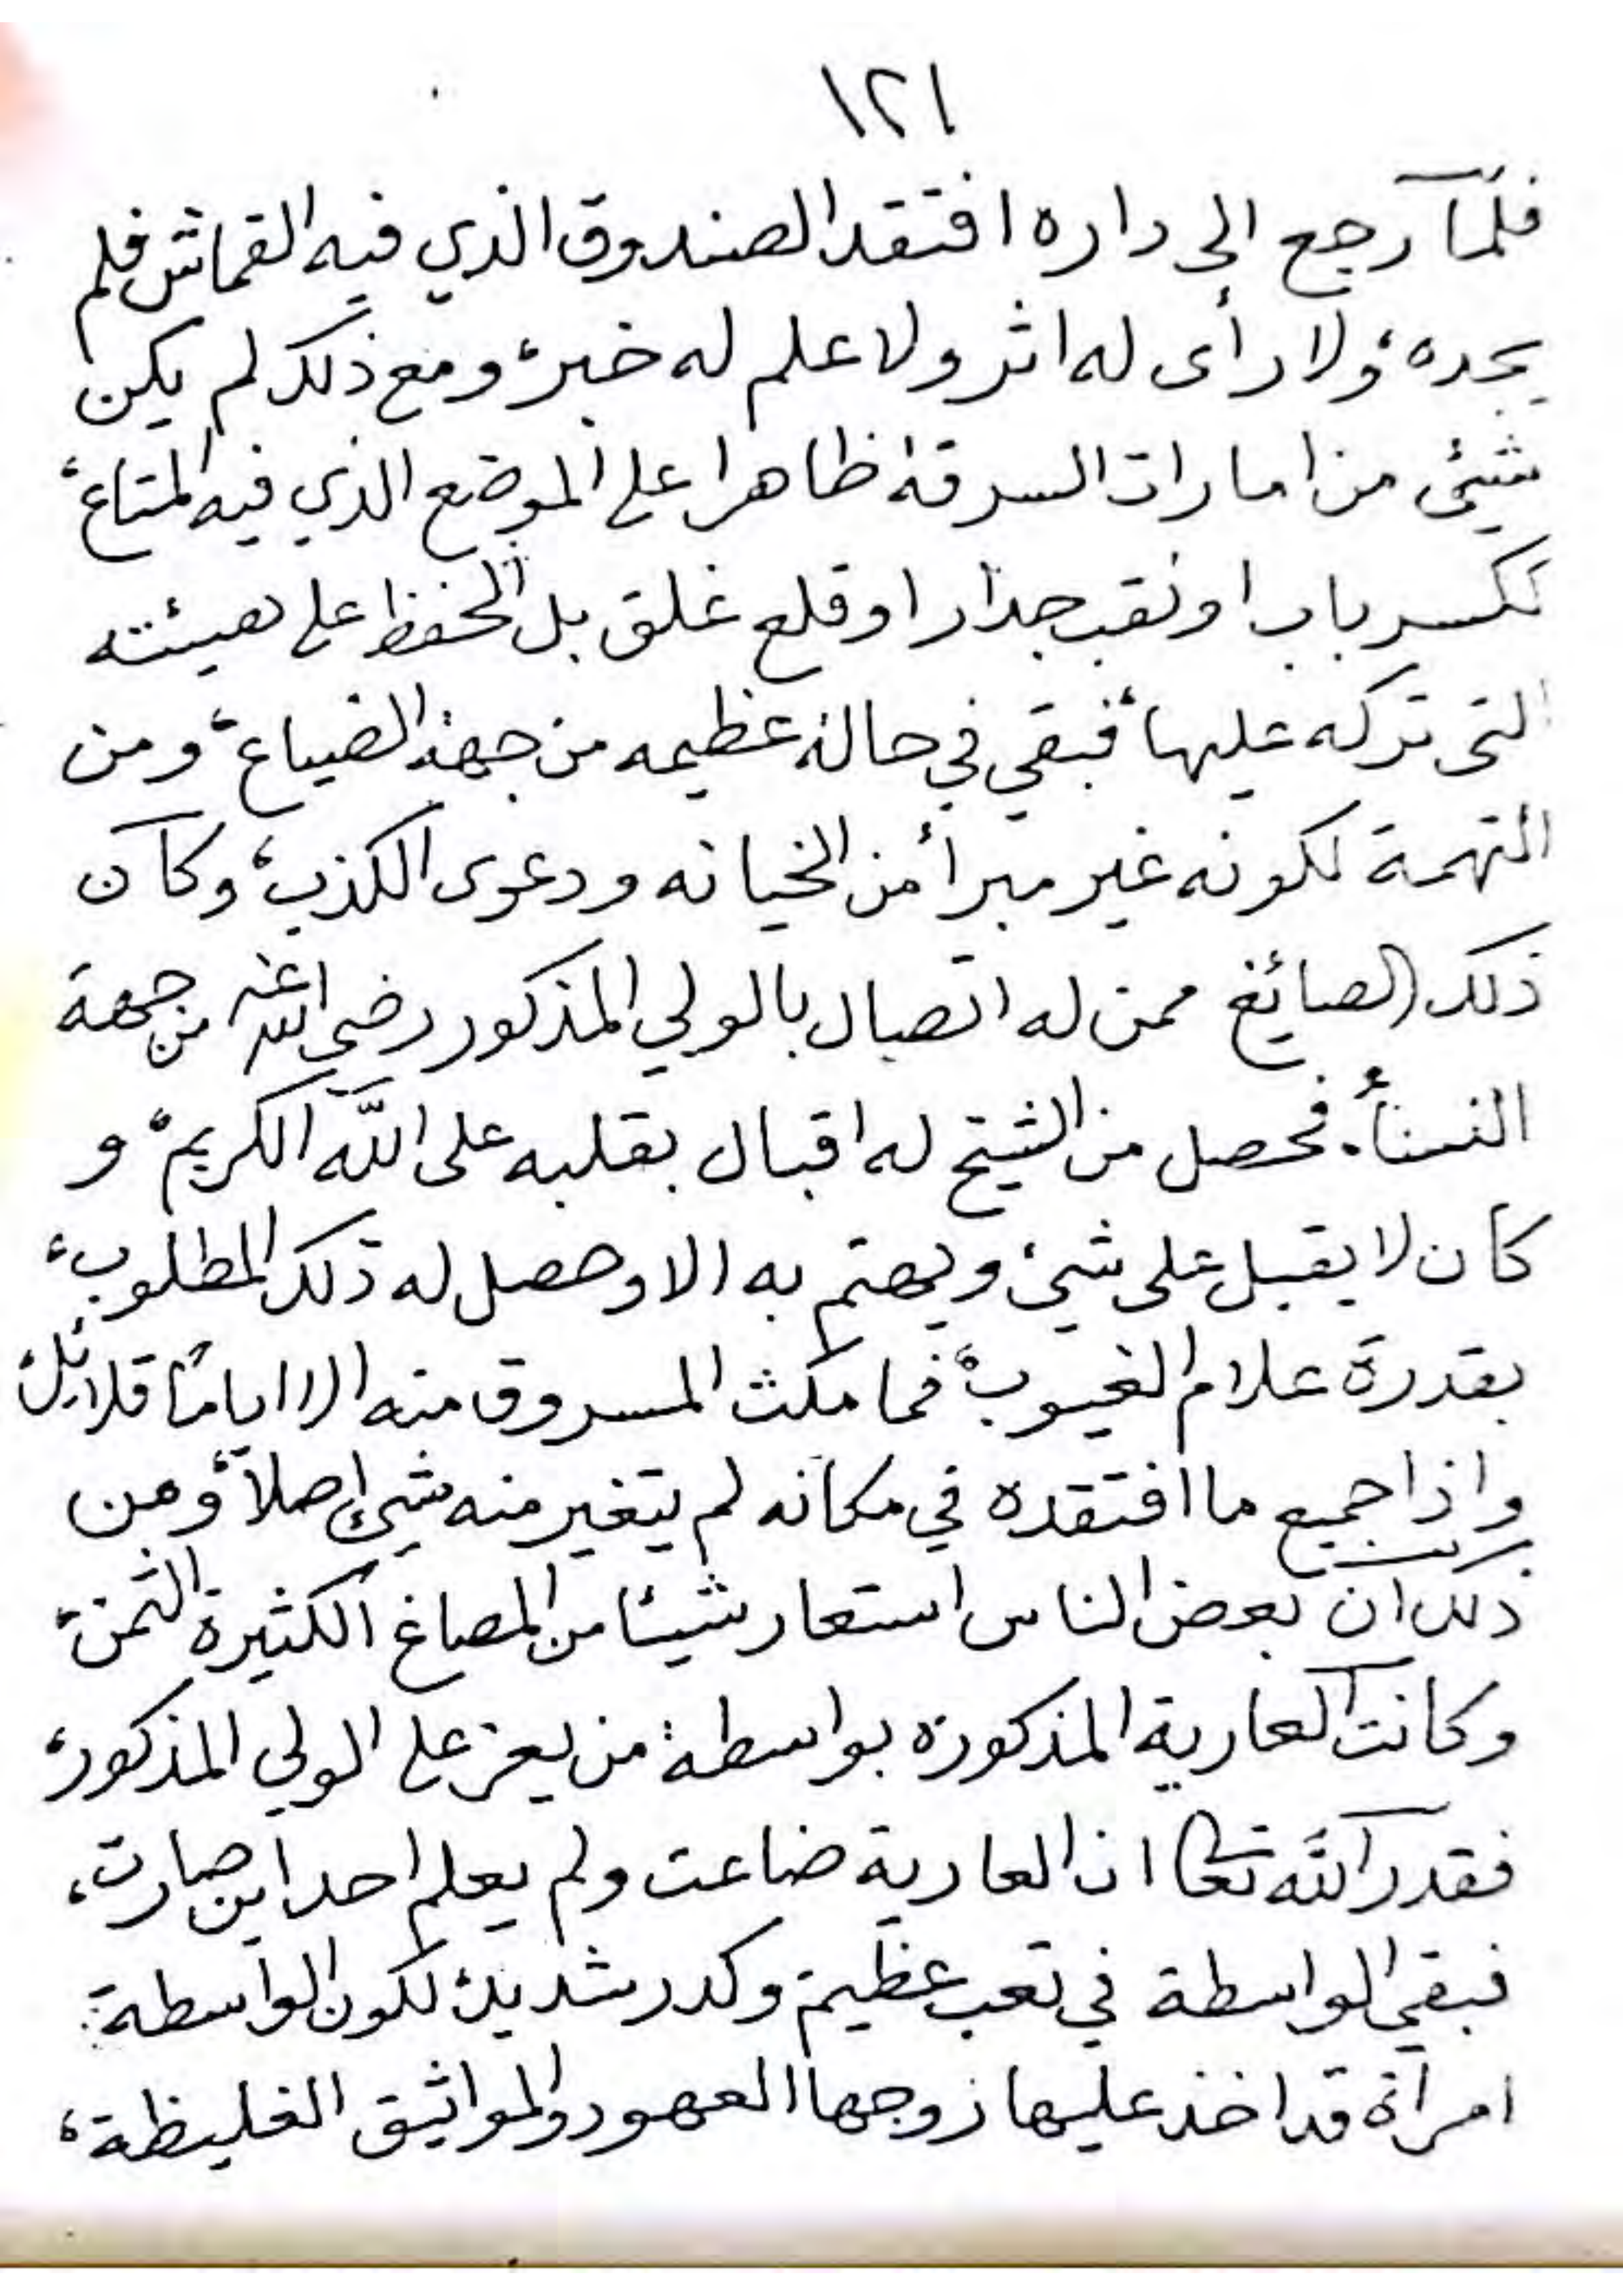 ١٢١
فلما رجع الى داره افتقد الصندوق الذي فيه القماش فلم
يجده، ولا رأى له اثر ولا علم له خبر، ومع ذلك لم يكن
شيئ من امارات السرقة ظاهرا على الموضع الذي فيه المتاع،
ككسر باب او نقب جدار او قلع غلق بل الحفظ على هيئته
التى تركه عليها، فبقي في حالة عظيمه من جهة الضياع، ومن
التهمة لكونه غير مبرأ من الخيانه ودعوى الكذب، وكان
ذلك الصائغ ممن له اتصال بالولي المذكور رضي الله عنه من جهة
النساء. فحصل من الشيخ له اقبال بقلبه على الله الكريم، و
كان لا يقبل على شيء ويهتم به الا وحصل له ذلك المطلوب،
بقدرة علام الغيوب، فما مكث المسروق منه الا اياما قلائل،
واذا جميع ما افتقده في مكانه لم يتغير منه شيء اصلا، ومن
ذلك ان بعض الناس استعار شيئا من المصاغ الكثيرة الثمن،
وكانت العارية المذكورة بواسطة من يعز على الولي المذكور،
فقدر الله تعالى ان العارية ضاعت ولم يعلم احد اين صارت،
فبقي الواسطة في تعب عظيم وكدر شديد، لكون الواسطة
امرأة قد اخذ عليها زوجها العهود والمواثيق الغليظة،